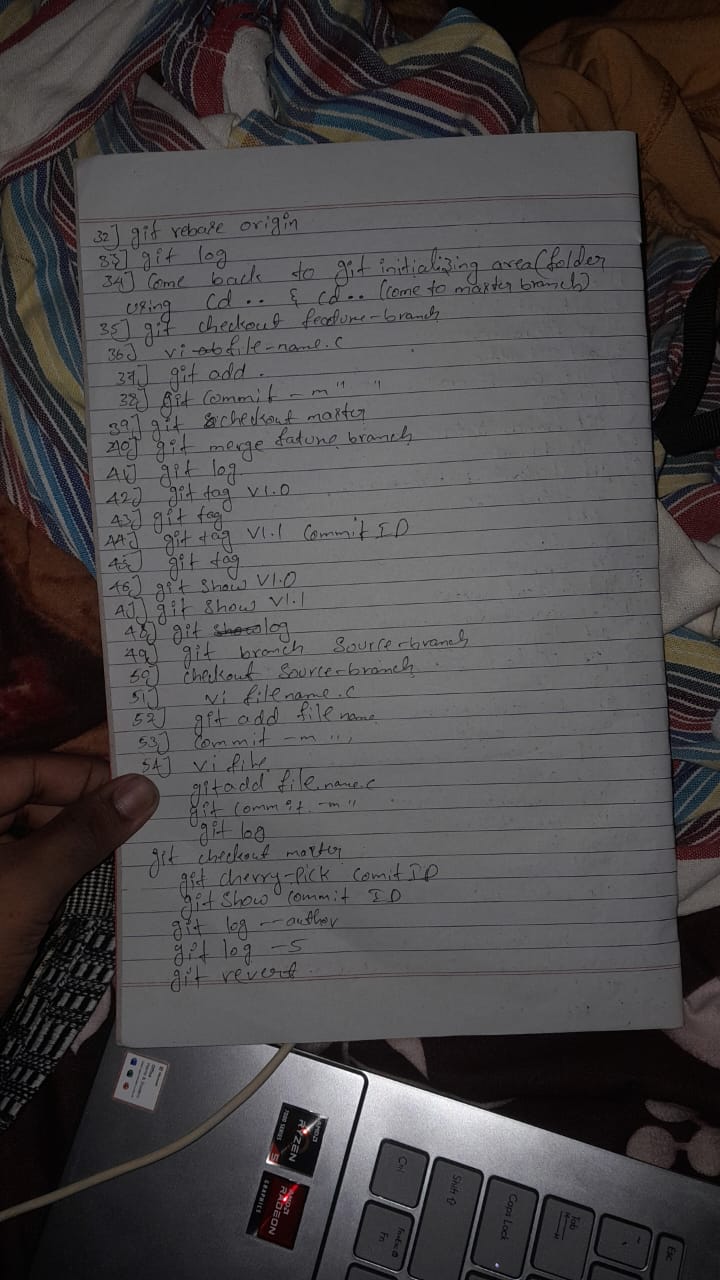 32] git rebase origin
33] git log
34] Come back to git initializing area(folder
using cd .. & cd .. (come to master branch)
35] git checkout feature-branch
36] vi file-name.c
37] git add .
38] git commit -m " "
39] git checkout master
40] git merge fature branch
41] git log
42] git tag V1.0
43] git tag
44] git tag V1.1 Commit ID
45] git tag
46] git show V1.0
47] git show V1.1
48] git log
49] git branch Source-branch
50] checkout Source-branch
51] vi filename.c
52] git add filename
53] Commit -m ""
54] vi file
git add filename.c
git commit -m "
git log
git checkout master
git cherry-pick Comit ID
git Show Commit ID
git log --author
git log -S
git revert
AMD
RYZEN
5
7000 SERIES
AMD
RADEON
GRAPHICS
Esc
Tab
Caps Lock
Shift
Ctrl
Fn